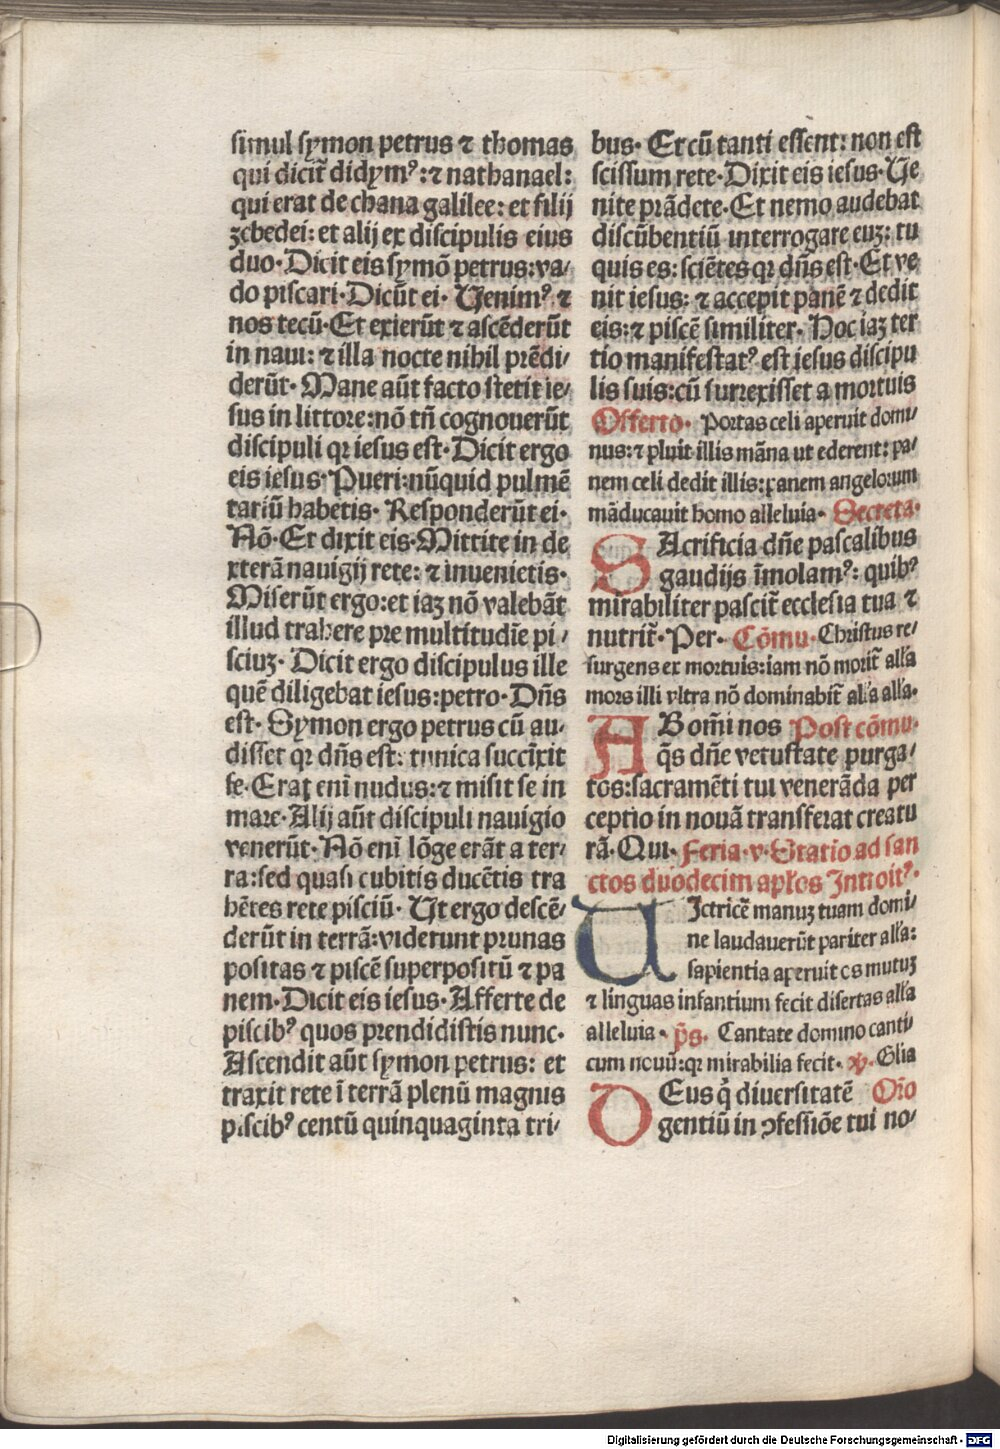 simul symon petrus ⁊ thomas
qui dicit̃ didymꝰ:⁊ nathanael:
qui erat de chana galilee: et filij
zebedei: et alij ex discipulis eius
duo· Dicit eis symõ petrus: va/
do piscari· Dicũt ei· Uenimꝰ ⁊
nos tecũ· Et exierũt ⁊ ascẽderũt
in naui: ⁊ illa nocte nihil prẽdi/
derũt· Mane aũt facto stetit ie/
sus in littore: nõ tñ cognouerũt
discipuli qꝛ iesus est· Dicit ergo
eis iesus· Pueri: nũquid pulmẽ
tariũ habetis· Responderũt ei·
Nõ· Et dixit eis· Mittite in de
xterã nauigij rete: ⁊ inuenietis·
Miserũt ergo: et iaz nõ valebãt
illud trahere pre multitudĩe pi/
sciuz· Dicit ergo discipulus ille
quẽ diligebat iesus: petro· Dñs
est· Symon ergo petrus cũ au/
disset qꝛ dñs est: tunica succĩxit
se· Erat eni nudus: ⁊ misit se in
mare· Alij aũt discipuli nauigio
venerũt· Nõ eni lõge erãt a ter/
ra: sed quasi cubitis ducẽtis tra
hẽtes rete pisciũ· Ut ergo descẽ/
derũt in terrã: viderunt prunas
positas ⁊ piscẽ superpositũ ⁊ pa
nem· Dicit eis iesus· Afferte de
piscibꝰ quos prendidistis nunc·
Ascendit aũt symon petrus: et
traxit rete ĩ terrã plenũ magnis
piscibꝰ centũ quinquaginta tri/
bus· Et cũ tanti essent: non est
scissum rete· Dixit eis iesus· Ue
nite prãdete· Et nemo audebat
discũbentiũ interrogare euz: tu
quis es: sciẽtes qꝛ dñs est· Et ve
nit iesus: ⁊ accepit panẽ ⁊ dedit
eis: ⁊ piscẽ similiter· Hoc iaz ter
tio manifestatꝰ est iesus discipu
lis suis: cũ surrexisset a mortuis
Offerto· Portas celi aperuit domi/
nus: ⁊ pluit illis mãna ut ederent: pa/
nem celi dedit illis: panem angelorum
mãducauit homo alleluia· Secreta·
SAcrificia dñe pascalibus
gaudijs ĩmolamꝰ: quibꝰ
mirabiliter pascit̃ ecclesia tua ⁊
nutrit̃· Per· Cõmu· Christus re/
surgens ex mortuis: iam nõ morit̃ alľa
mors illi vltra nõ dominabit̃ alľa alľa·
ABom̃i nos Post cõmu·
q̃s dñe vetustate purga/
tos: sacramẽti tui venerãda per
ceptio in nouã transferat creatu
rã· Qui· Feria·v· Statio ad san
ctos duodecim apľos Introitꝰ·
UIctricẽ manuz tuam domi/
ne laudauerũt pariter alľa:
sapientia aperuit os mutuz
⁊ linguas infantium fecit disertas alľa
alleluia· p̃s· Cantate domino canti
cum nouũ: qꝛ mirabilia fecit· ꝟ· Glia
DEus q̃ diuersitatẽ Oĩo
gentiũ in ꝯfessiõe tui no/
Digitalisierung gefördert durch die Deutsche Forschungsgemeinschaft - DFG